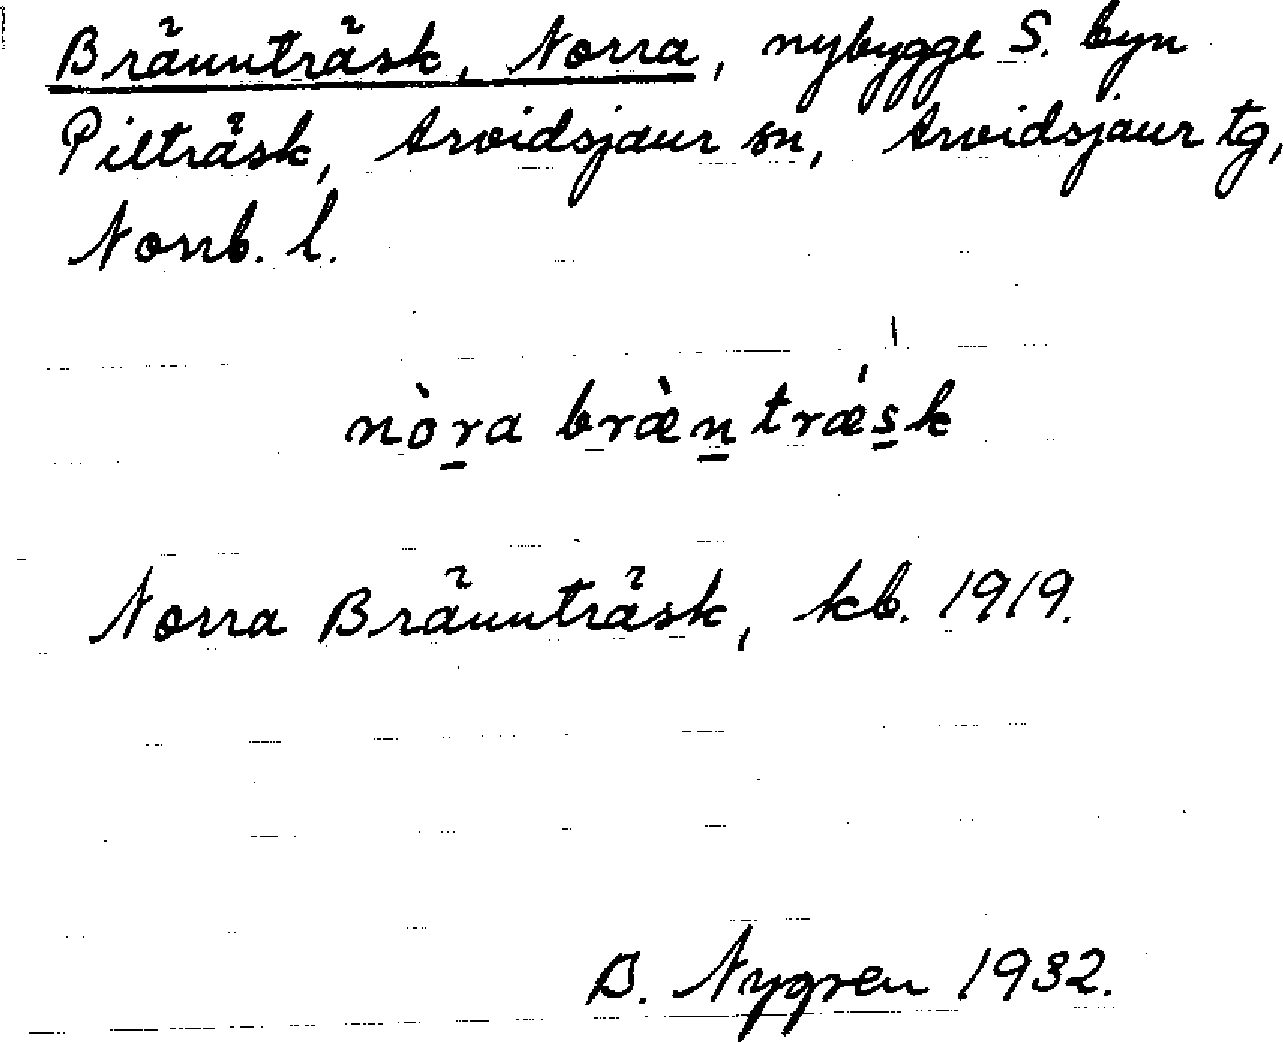 Brännträsk, Norra, nybygge S. byn
Pilträsk, Arvidsjaur sn, Arvidsjaur tg,
Norrb. l.
nòr̲a bræ̀n̲trǽs̲k
Norra Brännträsk, kb. 1919.
B. Nygren 1932.